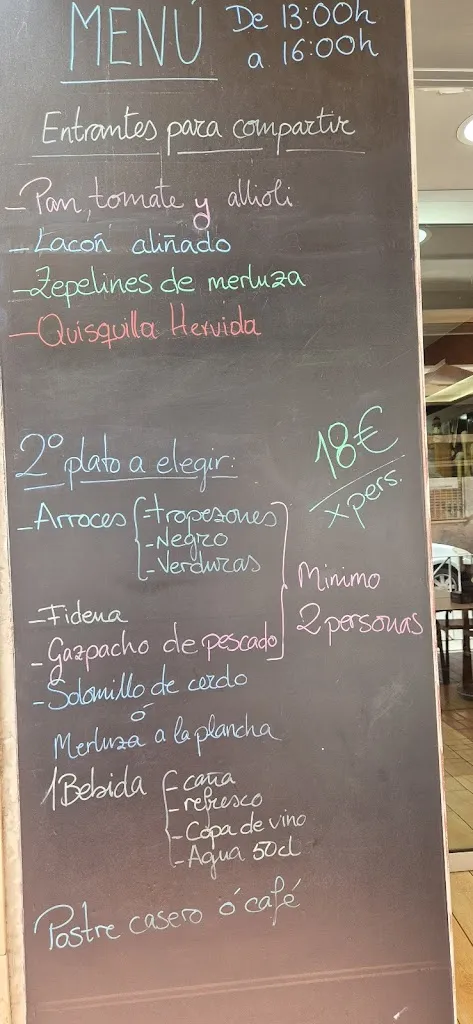 MENÚ De 13:00h
a 16:00h
Entrantes para compartir
- Pan, tomate y allioli
- Lacón aliñado
- Zepelines de merluza
- Quisquilla Hervida
2º plato a elegir:
18€
x pers.
- Arroces - tropezones
- Negro
- Verduras
Minimo
2 personas
- Fideua
- Gazpacho de pescado
- Solomillo de cerdo
ó
Merluza a la plancha
1 Bebida - caña
- refresco
- Copa de vino
- Agua 50cl
Postre casero ó café